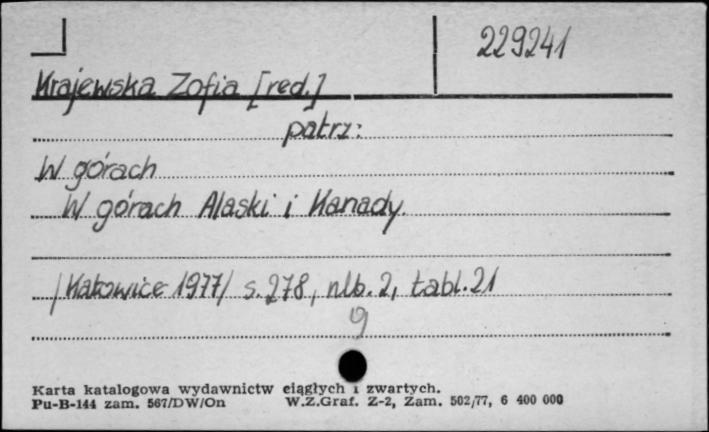 229241
Krajewska Zofia [red.]
patrz:
W górach
W górach Alaski i Kanady
/Katowice 1977/ s. 278, nlb. 2, tabl. 21
9
Karta katalogowa wydawnictw ciągłych i zwartych.
Pu-B-144 zam. 567/DW/On W.Z.Graf. Z-2, Zam. 502/77, 6 400 000